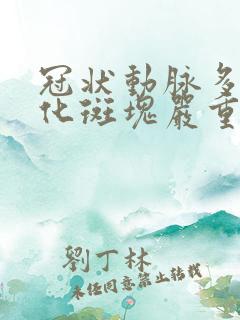 冠狀動脈多
化斑塊嚴重
劉丁林
未經同意禁止轉載